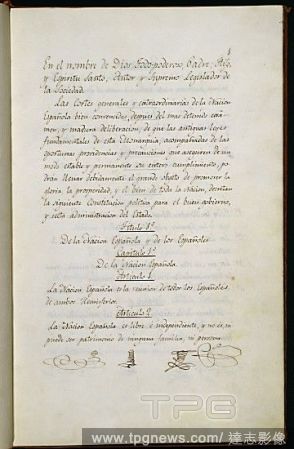 En el nombre de Dios Todo-poderoso, Padre, Hijo,
y Espiritu Santo, Autor y Supremo Legislador de
la Sociedad.
Las Cortes generales y extraordinarias de la Nacion
Española bien convencidas, despues del mas detenido exa-
men, y madura deliberacion, de que las antiguas leyes
fundamentales de esta Monarquia, acompañadas de las
oportunas providencias y precauciones que aseguren de un
modo estable y permanente su entero cumplimiento, po-
dran llenar debidamente el grande objeto de promover la
gloria la prosperidad, y el bien de toda la nacion, decretan
la siguiente Constitucion politica para el buen gobierno,
y recta administracion del Estado.
Titulo 1.º
De la Nacion Española y de los Españoles
Capitulo 1.º
De la Nacion Española.
Articulo 1
La Nacion Española es la reunion de todos los Españoles
de ambos Hemisferios.
Articulo 2
La Nacion Española es libre e independiente, y no es, ni
puede ser patrimonio de ninguna familia, ni persona.
TPG
www.tpgnews.com/達志影像